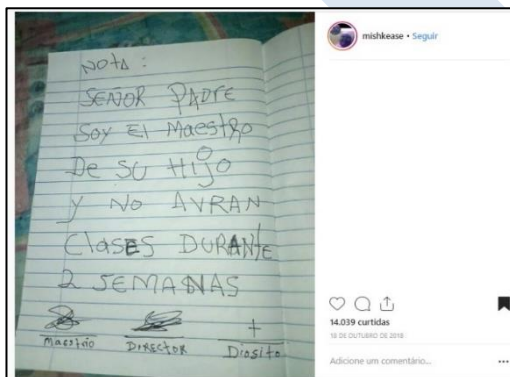 NOTA :
SEÑOR PADRE
SOY El MaestRO
De SU HIJO
Y NO AVRAN
ClaSES DURANTE
2 SEMANAS
Maestro DIRECTOR Diosito
mishkease • Seguir
14.039 curtidas
18 DE OUTUBRO DE 2018
Adicione um comentário...